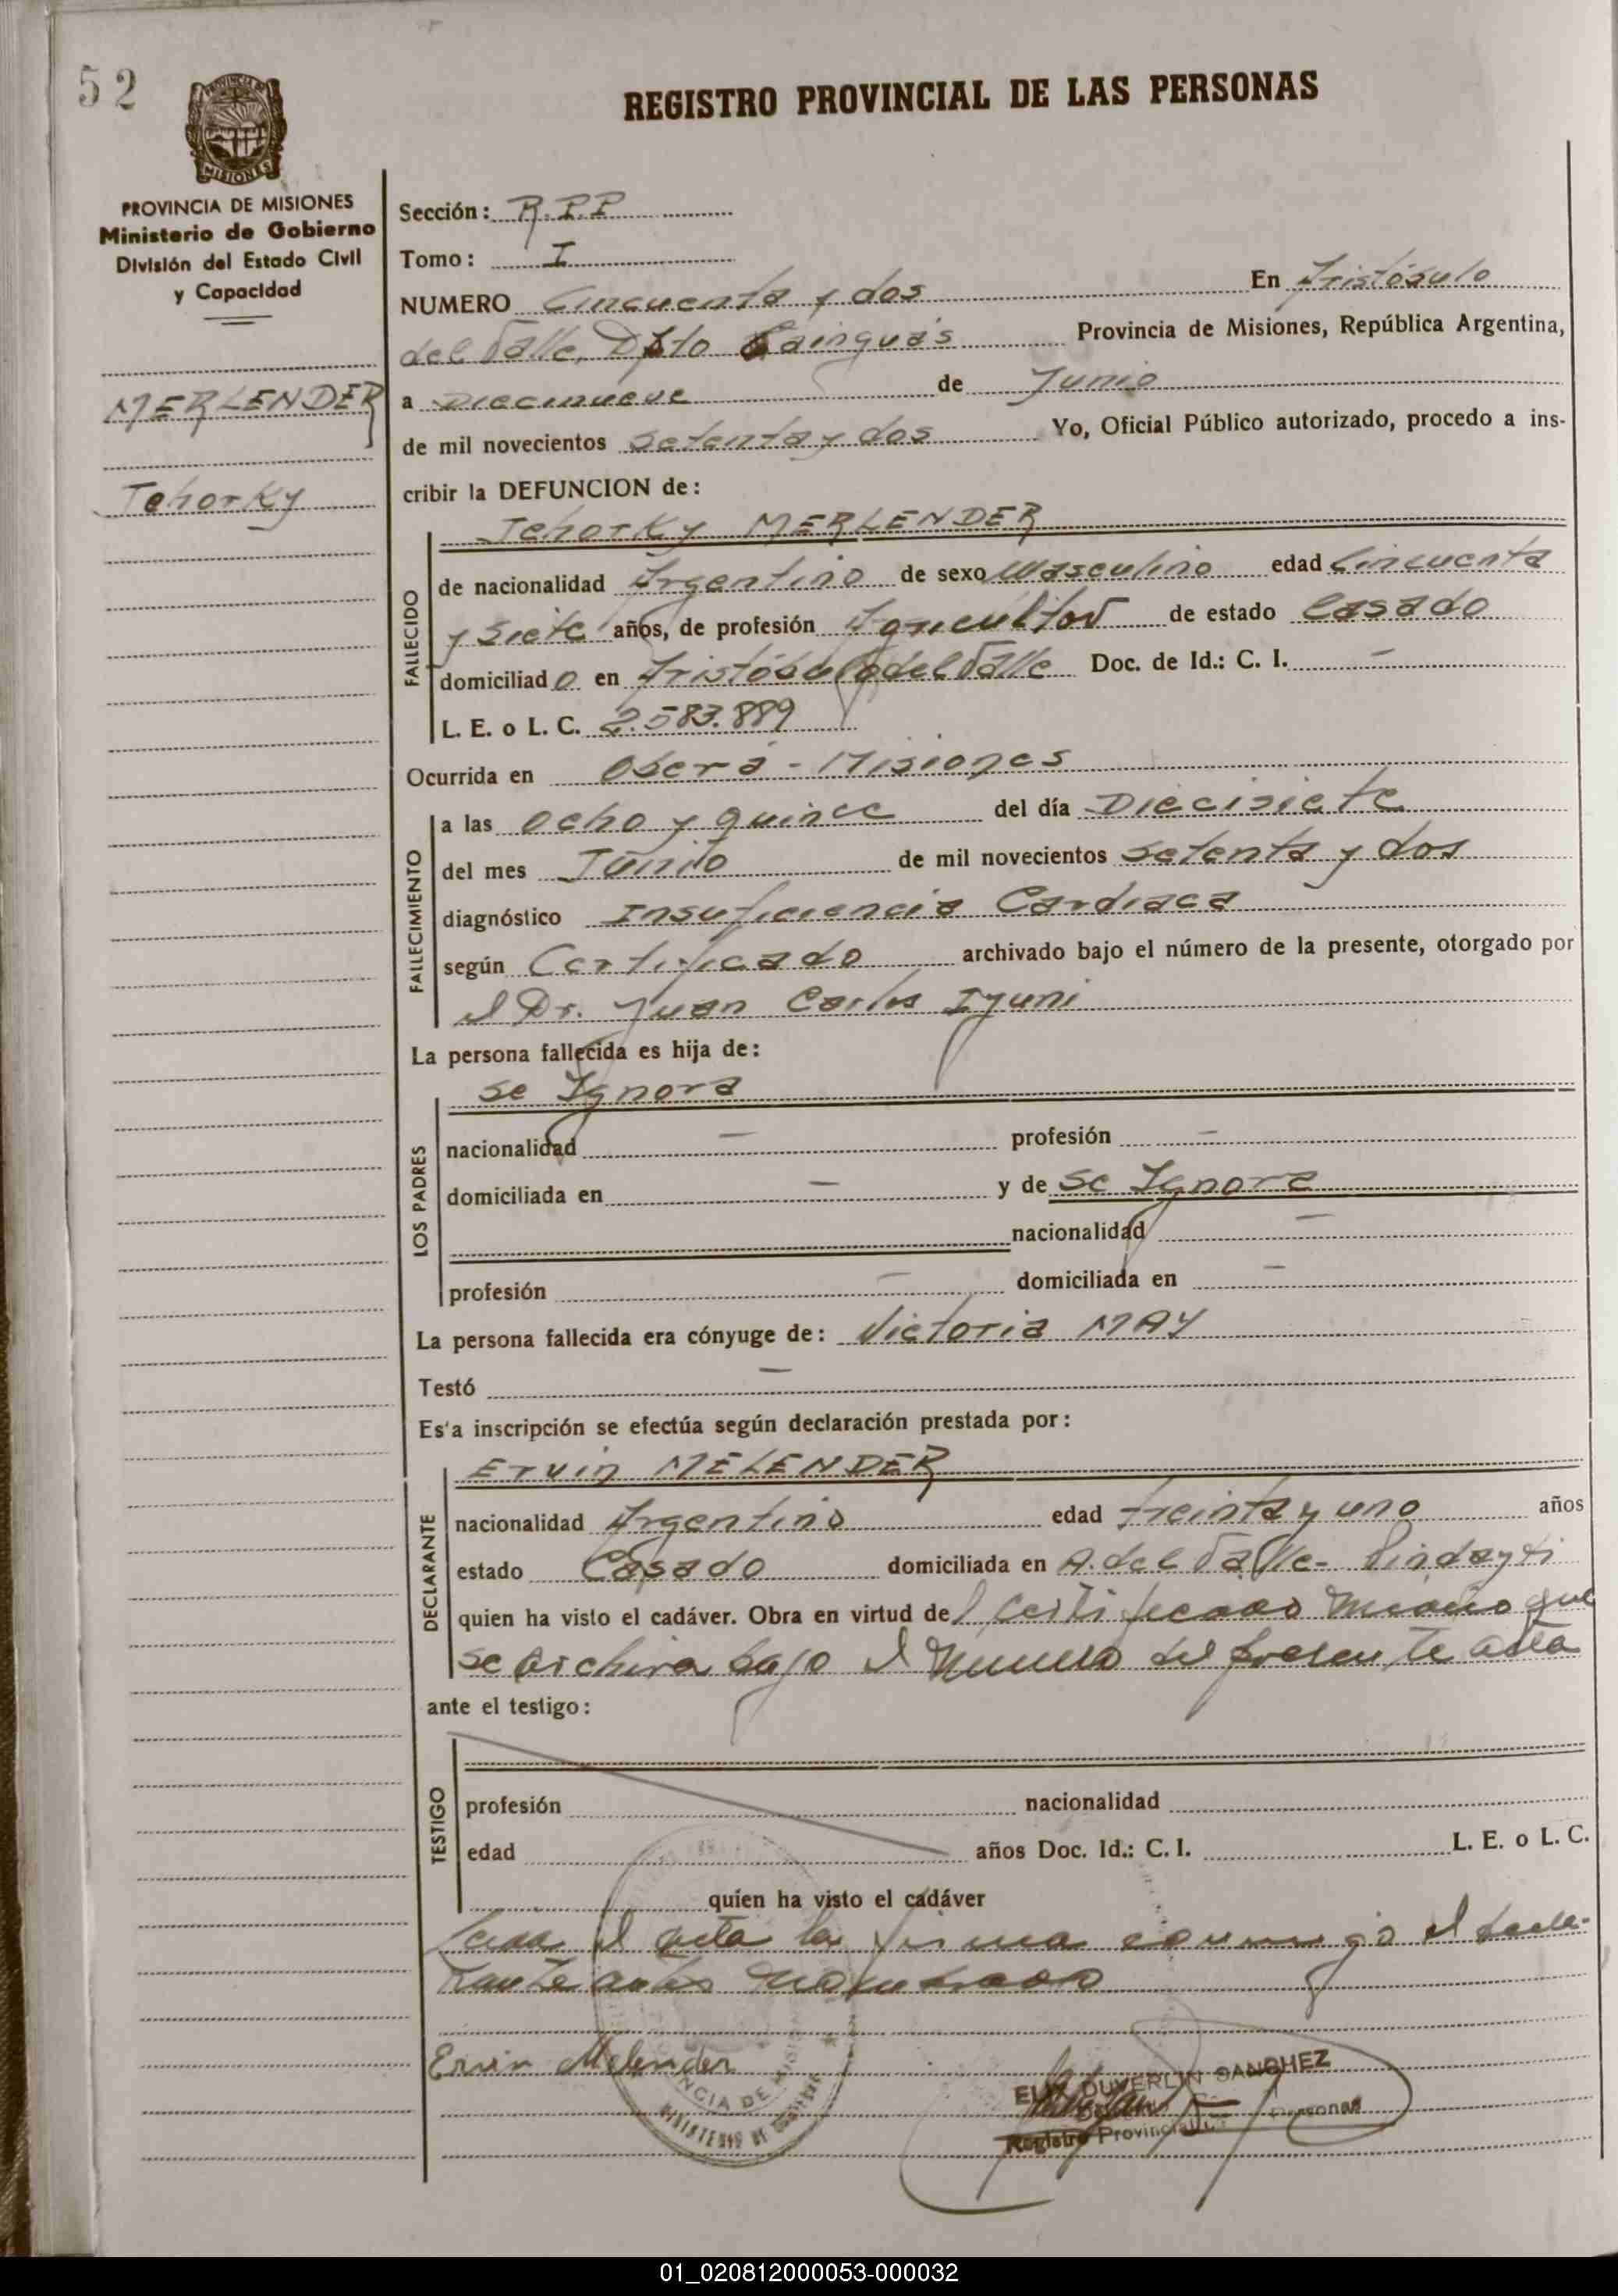 52
PROVINCIA DE
MISIONES
REGISTRO PROVINCIAL DE LAS PERSONAS
PROVINCIA DE MISIONES
Ministerio de Gobierno
División del Estado Civil
y Capacidad
MERLENDER
Tehorky
Sección: R.P.P
Tomo: I
NUMERO Cincuenta y dos En Aristóbulo
del Valle, Dpto Cainguás Provincia de Misiones, República Argentina,
a Diecinueve de Junio
de mil novecientos setenta y dos Yo, Oficial Público autorizado, procedo a ins-
cribir la DEFUNCION de:
FALLECIDO
Tehorky MERLENDER
de nacionalidad Argentino de sexo Masculino edad Cincuenta
y siete años, de profesión Agricultor de estado Casado
domiciliado en Aristóbulo del Valle Doc. de Id.: C. I. -
L. E. o L. C. 2.583.889
Ocurrida en Oberá - Misiones
FALLECIMIENTO
a las ocho y quince del día Diecisiete
del mes Junio de mil novecientos setenta y dos
diagnóstico Insuficiencia Cardiaca
según Certificado archivado bajo el número de la presente, otorgado por
el Dr. Juan Carlos Iyuni
La persona fallecida es hija de:
LOS PADRES
se Ignora
nacionalidad - profesión -
domiciliada en - y de se Ignora
nacionalidad -
profesión - domiciliada en -
La persona fallecida era cónyuge de: Victoria MAY
Testó -
Es'a inscripción se efectúa según declaración prestada por:
DECLARANTE
Ervin MELENDER
nacionalidad Argentino edad treinta y uno años
estado Casado domiciliada en A. del Valle- Pindayti
quien ha visto el cadáver. Obra en virtud del certificado médico que
se archiva bajo el número del presente acta
ante el testigo:
TESTIGO
profesión nacionalidad
edad años Doc. Id.: C. I. L. E. o L. C.
quien ha visto el cadáver
Leida el acta la firma conmigo el decla-
rante antes nombrado
Ervin Melender
DUVERLIN SANCHEZ
Registro Provincial Personas
01_020812000053-000032